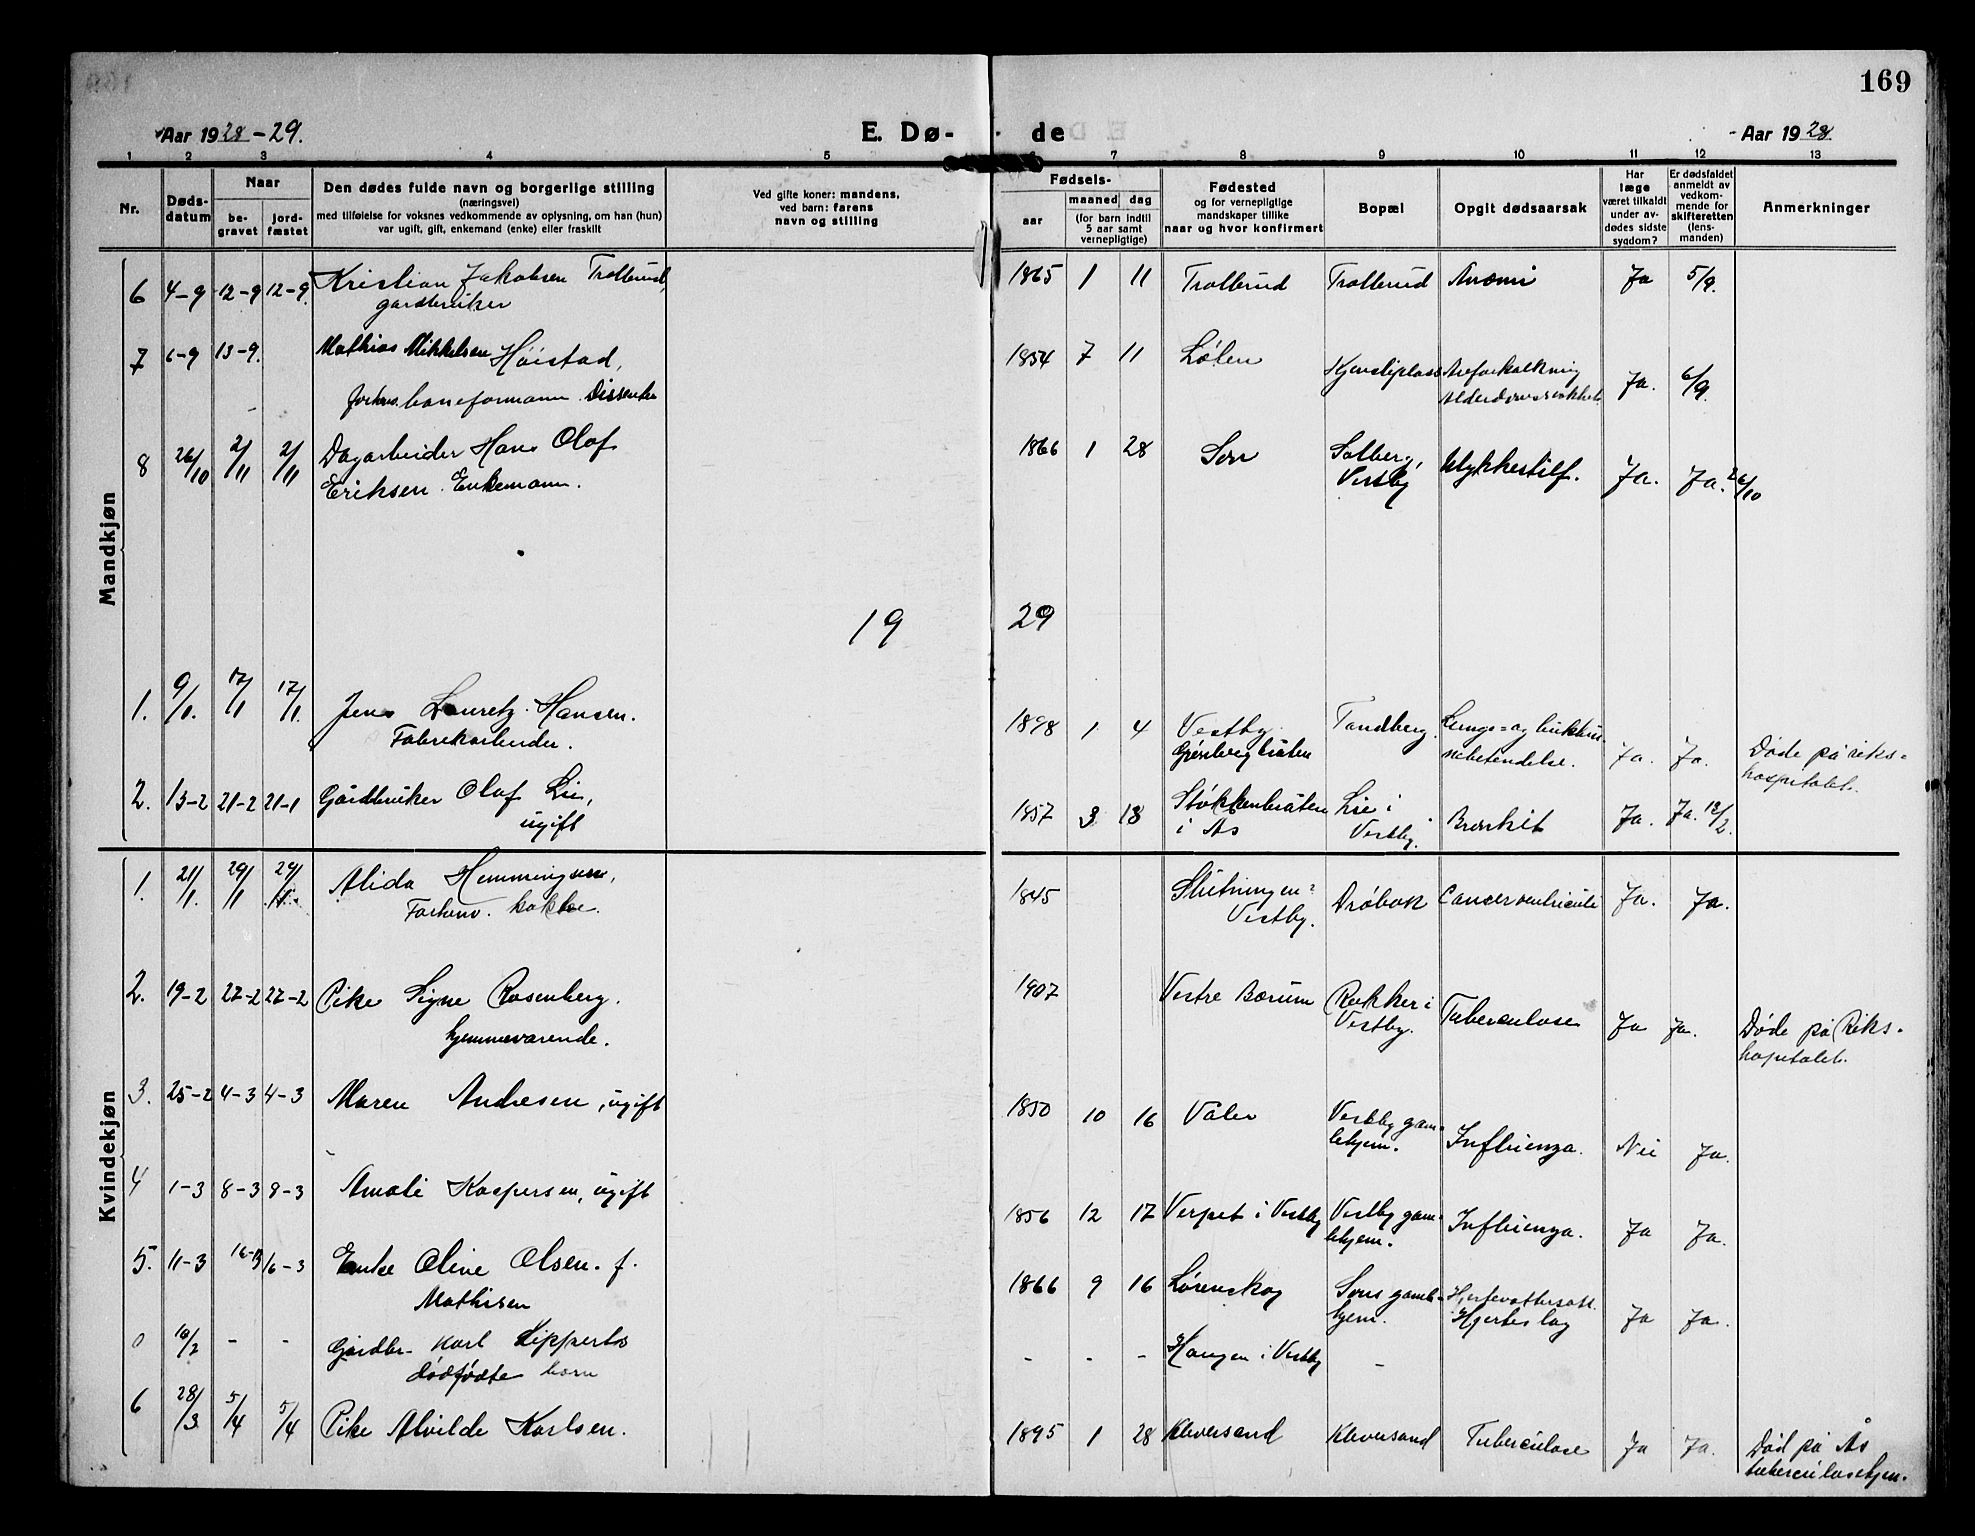 169
Aar 1928-29.
E. Dø- de
Aar 1928
1 2 3 4 5 6 7 8 9 10 11 12 13
Nr.
Døds-
datum
Naar
be-
gravet
jord-
fæstet
Den dødes fulde navn og borgerlige stilling
(næringsvei)
med tilføielse for voksnes vedkommende av oplysning, om han (hun)
var ugift, gift, enkemand (enke) eller fraskilt
Ved gifte koner: mandens,
ved barn: farens
navn og stilling
Fødsels-
aar
maaned dag
(for barn indtil
5 aar samt
vernepligtige)
Fødested
og for vernepligtige
mandskaper tillike
naar og hvor konfirmert
Bopæl
Opgit dødsaarsak
Har
læge
været tilkaldt
under av-
dødes sidste
sygdom?
Er dødsfaldet
anmeldt av
vedkom-
mende for
skifteretten
(lens-
manden)
Anmerkninger
Mandkjøn
6 4-9 12-9 12-9 Kristian Jakobsen Trollerud, 1865 1 11 Trollerud Trollerud Anæmi Ja 5/9.
gardbruker
7 6-9 13-9. Mathias Mikkelsen Höistad, 1854 7 11 Löten Aareforkalkning Ja. 6/9.
baneformann. Dissenter
8 26/10 2/11 2/11 Dagarbeider Hans Olaf 1866 1 28 Son Solberg, Ulykkestilf. Ja. Ja. 26/10
Eriksen. Enkemann. Vestby
19 29
1. 9/1. 17/1 17/1. Jens Lauretz Hansen. 1898 1 4 Vestby. Tandberg. Lunge- og
Fabrikarbeider. nebetendelse. Ja. Ja. Döde på riks-
hospitalet.
2. 13-2 21-2 21-1 Gårdbruker Olaf Lie, 1857 3 13 Stökkenbråten Lie i Bronkit Ja. Ja. 13/2.
ugift i Ås Vestby.
Kvindekjøn
1. 21/1. 29/1 29/1. Alida Hemmingsen, 1845 Dröbak Cancer ventriculi Ja. Ja.
Forhenv. kokke. Vestby.
2. 19-2 27-2 27-2 Pike Signe Rosenberg. 1907 Vestre Bærum Rukker i Tuberculose Ja Ja. Döde på Riks-
hjemmeværende. Vestby. hospitalet.
3. 25-2 4-3 4-3 Maren Andresen, ugift 1850 10 16 Våler Vestby gam- Influenza. Nei Ja.
lehjem.
4 1-3 8-3 9-3 Amalie Kaspersen, ugift 1856 12 17 Verpet i Vestby Vestby gam- Influenza. Ja Ja.
lehjem.
5. 11-3 16-3 16-3 Enke Oline Olsen. f. 1866 9 16 Lörenskog Sons gamle- Ja Ja.
Mathisen hjem. Hjerteslag
0 10/2 - - Gårdbr- Karl Lippertos - - - Haugen i Vestby -
dödfödte barn
6 28/3 5/4 5/4 Pike Alvilde Karlsen. 1895 1 28 Kleversand Kleversand Tuberculose Ja Ja. Död på Ås
tuberculosehjem.